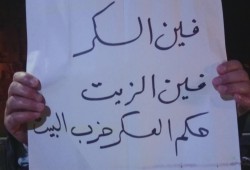 فين السكر
فين الزيت
حكم العسكر خرب البيت